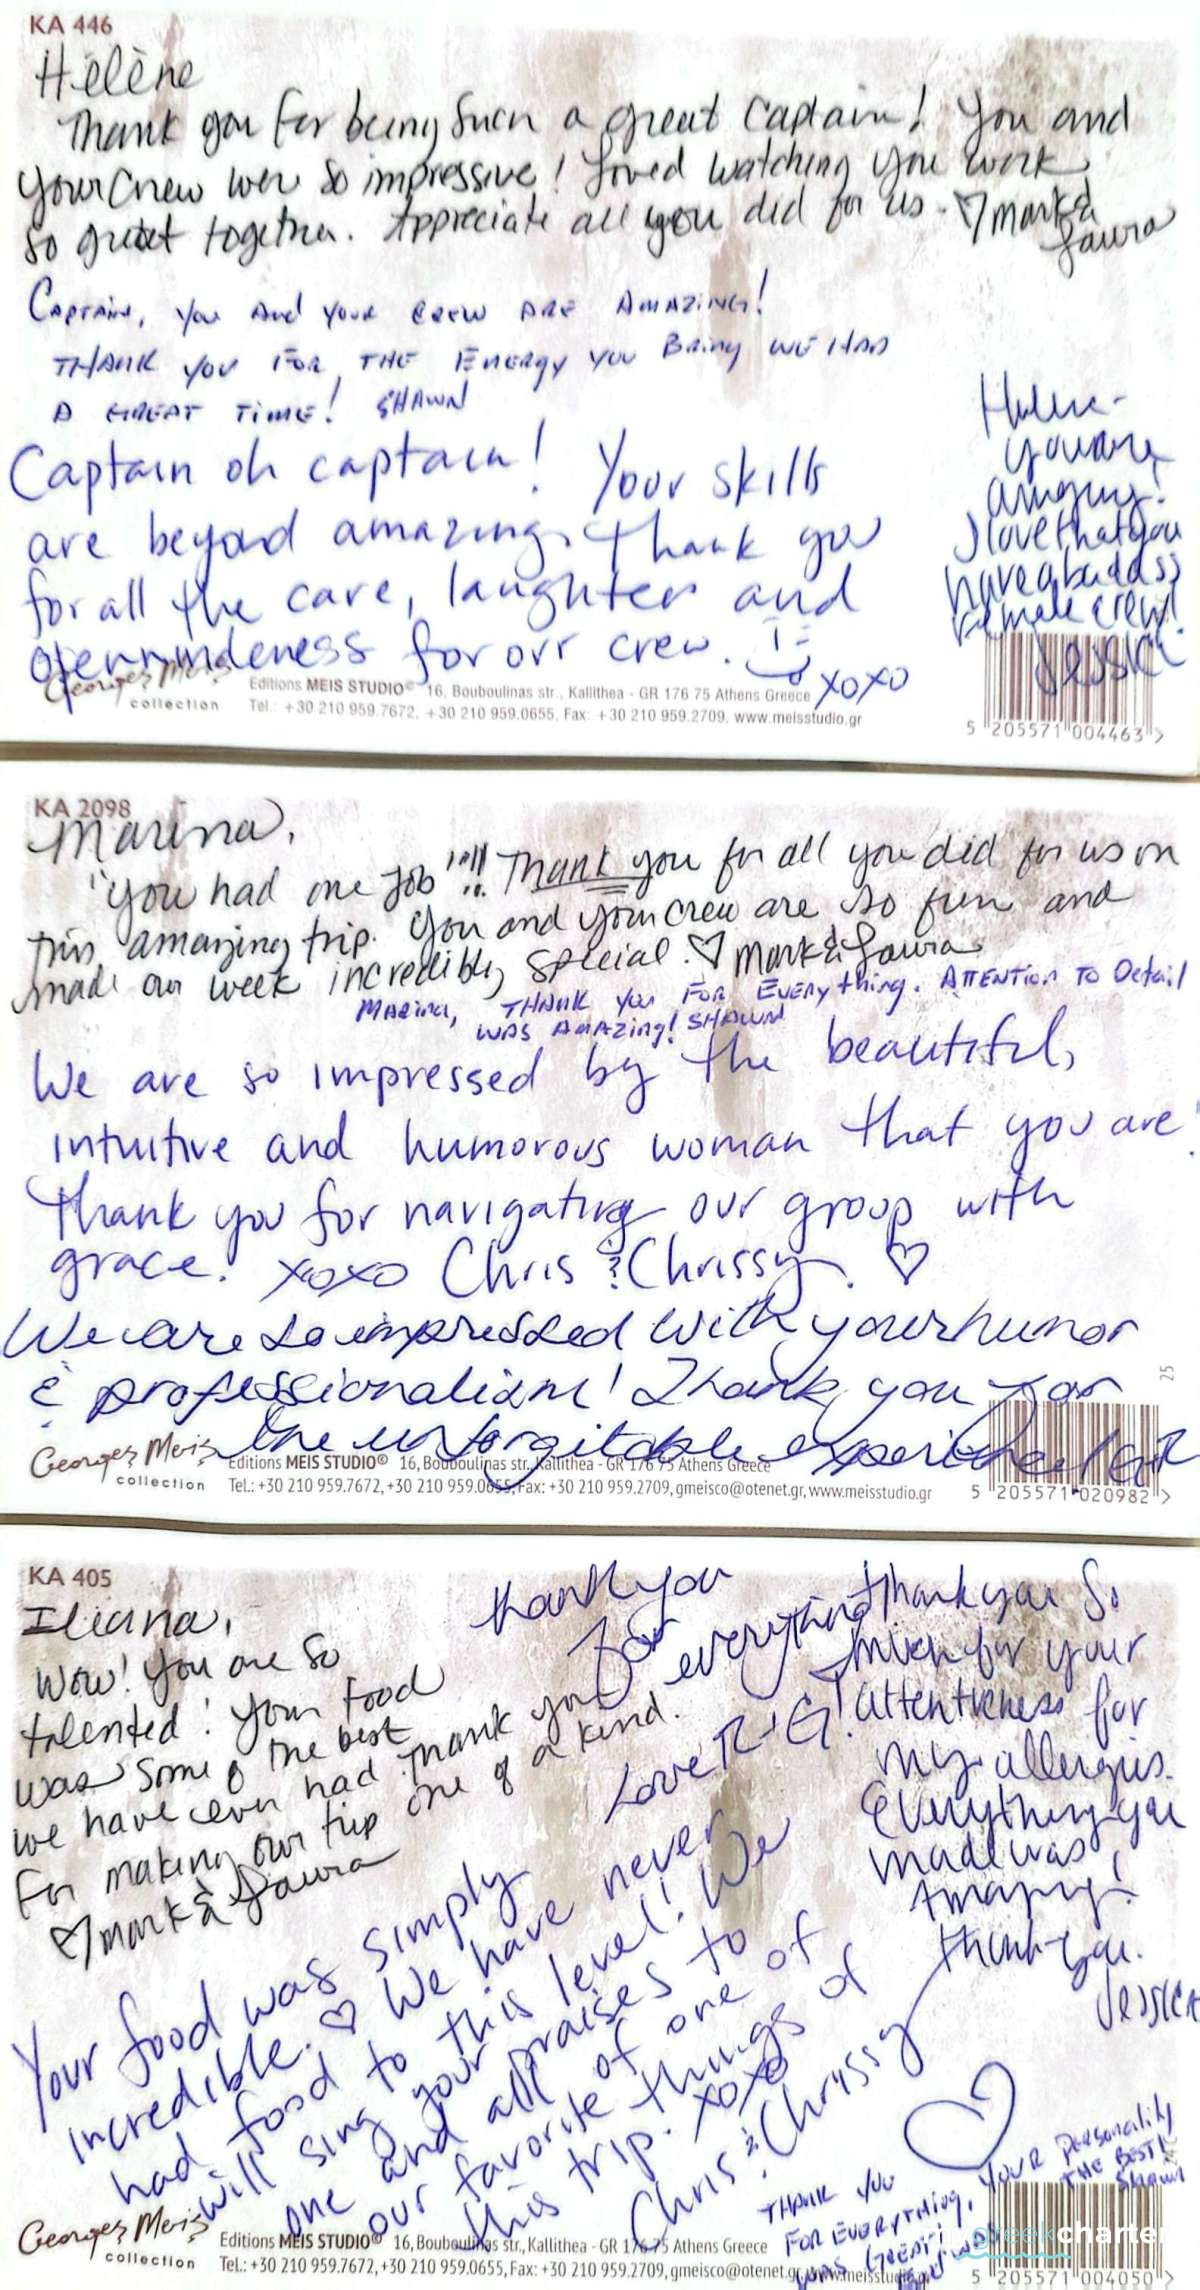 KA 446
Hélène
Thank you for being such a great Captain! You and
your crew wer so impressive! Loved watching you work
so great together. Appreciate all you did for us. ♡ Mark &
Laura
Captain, you and your crew are Amazing!
THANK YOU FOR THE Energy you Bring WE HAD
A GREAT TIME! SHAWN
Captain oh captain! Your skills
are beyond amazing. Thank you
for all the care, laughter and
openmindeness for our crew.
xoxo
Helene-
you are
amazing!
I love that you
have a badass
female crew!
Georges Meis
collection
Editions MEIS STUDIO© 16, Bouboulinas str., Kallithea - GR 176 75 Athens Greece
Tel.: +30 210 959.7672, +30 210 959.0655, Fax: +30 210 959.2709, www.meisstudio.gr
5 205571 004463 >
KA 2098
Marina,
"You had one job"!!!! Thank you for all you did for us on
this amazing trip. You and your crew are so fun and
made our week incredibly special. ♡ Mark & Laura
Marina, THANK You FOR EVErything. ATTENTION TO Detail
WAS AMAZing! SHAWN
We are so impressed by the beautiful,
intuitive and humorous woman that you are!
Thank you for navigating our group with
grace. xoxo Chris & Chrissy. ♡
We are so impressed with your humor
& professionalism! Thank you for
the unforgitable experience!
25
Georges Meis
collection
Editions MEIS STUDIO© 16, Bouboulinas str. Kallithea - GR 176 75 Athens Greece
Tel.: +30 210 959.7672, +30 210 959.0655, Fax: +30 210 959.2709, gmeisco@otenet.gr, www.meisstudio.gr
5 205571 020982 >
KA 405
Iliana,
Wow! You are so
talented! Your food
was some of the best
we have ever had. Thank you
for making our trip one of a kind.
♡ Mark & Laura
Thank you
for everything
Love R & G!
Thank you so
much for your
attentiveness for
my allergies.
Everything you
made was
Amazing!
Thank-you.
Jessica
Your food was simply
incredible. ♡ We have never
had food to this level! We
will sing your praises to
one and all of one of
our favorite things of
this trip. xoxo
Chris & Chrissy
THANK YOU
FOR EVERYTHING, YOUR Personality
WAS GREAT! THE BEST!
Shawn
Georges Meis
collection
Editions MEIS STUDIO© 16, Bouboulinas str., Kallithea - GR 176 75 Athens Greece
Tel.: +30 210 959.7672, +30 210 959.0655, Fax: +30 210 959.2709, gmeisco@otenet.gr, www.meisstudio.gr
greekcharter
5 205571 004050 >